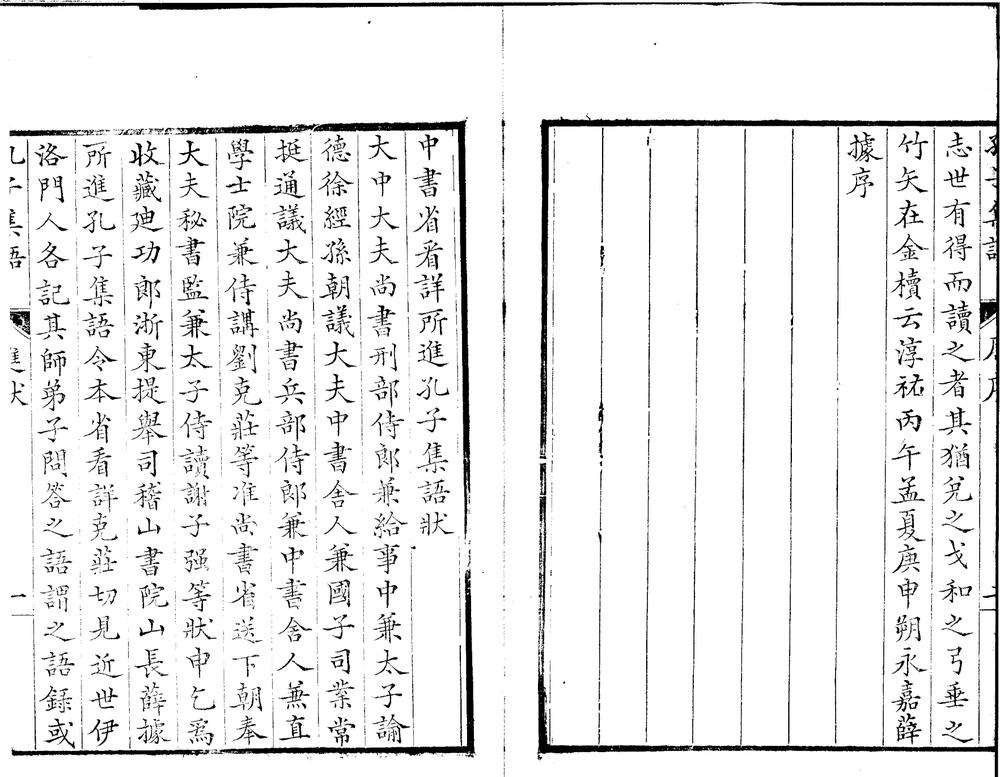 孔子集語 序 二
志世有得而讀之者其猶兌之戈和之弓垂之
竹矢在金櫝云淳祐丙午孟夏庚申朔永嘉薛
據序
中書省看詳所進孔子集語狀
大中大夫尚書刑部侍郎兼給事中兼太子諭
德徐經孫朝議大夫中書舍人兼國子司業常
挺通議大夫尚書兵部侍郎兼中書舍人兼直
學士院兼侍講劉克莊等准尚書省送下朝奉
大夫秘書監兼太子侍讀謝子强等狀申乞爲
收藏廸功郎浙東提舉司稽山書院山長薛據
所進孔子集語令本省看詳克莊切見近世伊
洛門人各記其師弟子問答之語謂之語録或
孔子集語 進狀 一